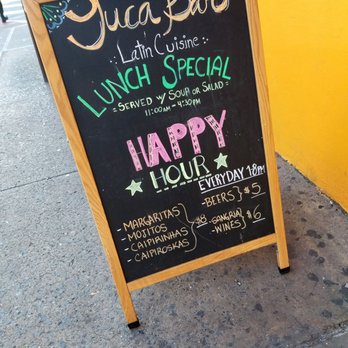 Yuca Bar
Latin Cuisine
LUNCH SPECIAL
- SERVED W/ SOUP OR SALAD -
11:00AM - 4:30PM
HAPPY
HOUR
EVERYDAY
- BEERS } $5
- MARGARITAS
- MOJITOS
- CAIPIRINHAS
- CAIPIROSKAS
} $8
- SANGRIA
- WINES } $6